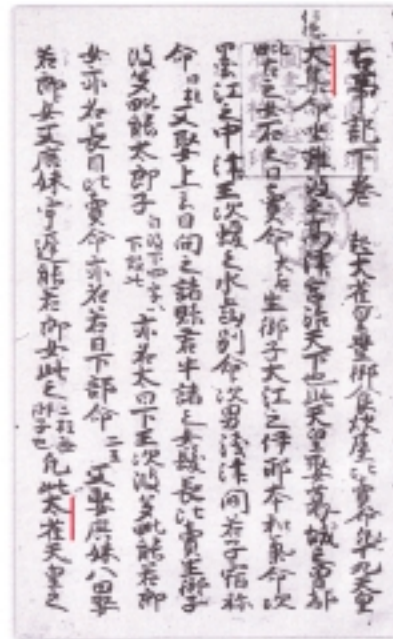 古事記下巻 起大雀皇帝尽豊御食炊屋比賣命凢十九天皇
大雀命坐難波之高津宮治天下也此天皇娶葛城之曽都
比古之女石之日賣命 大后 生御子大江之伊耶本和氣命次
墨江之中津王次蝮之水歯別命次男浅津間若子宿祢
命 又娶上云日向之諸縣君牛諸之女髪長比賣生御子
波多毗能大郎子 自波下四字 下效此 亦名大日下王次波多毗能若郎
女亦名長日比賣命亦名若日下部命 二王 又娶庶妹八田若
郎女又庶妹宇遅能若郎女此之 凢此大雀天皇之